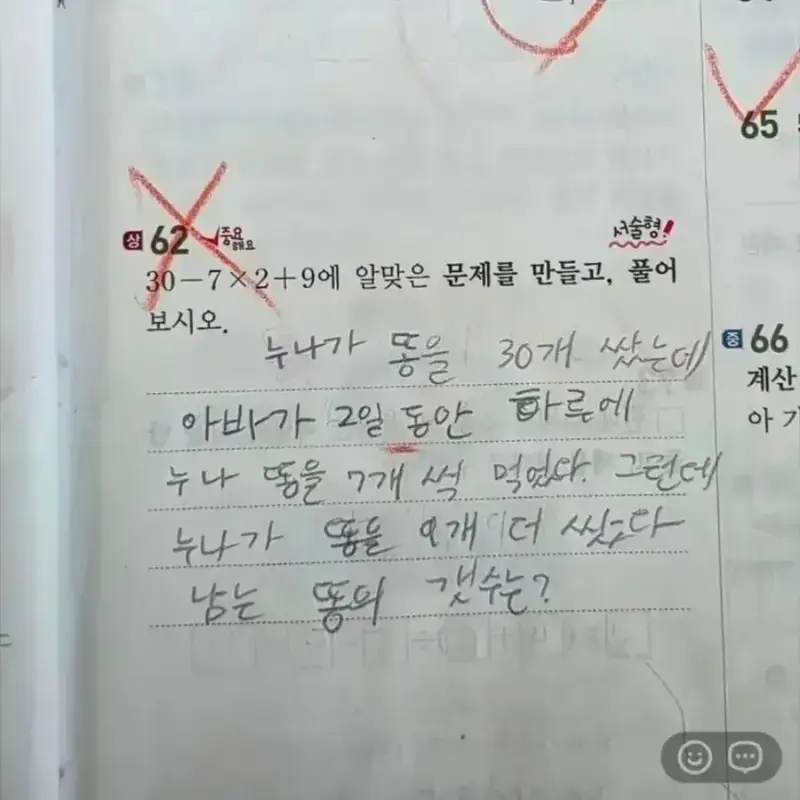 상 62 중요해요
서술형!
30－7×2＋9에 알맞은 문제를 만들고, 풀어
보시오.
누나가 똥을 30개 쌌는데
아바가 2일 동안 하루에
누나 똥을 7개 씩 먹었다. 그런데
누나가 똥을 9개 더 쌌다
남는 똥의 갯수는?
65
중 66
계산
아 가